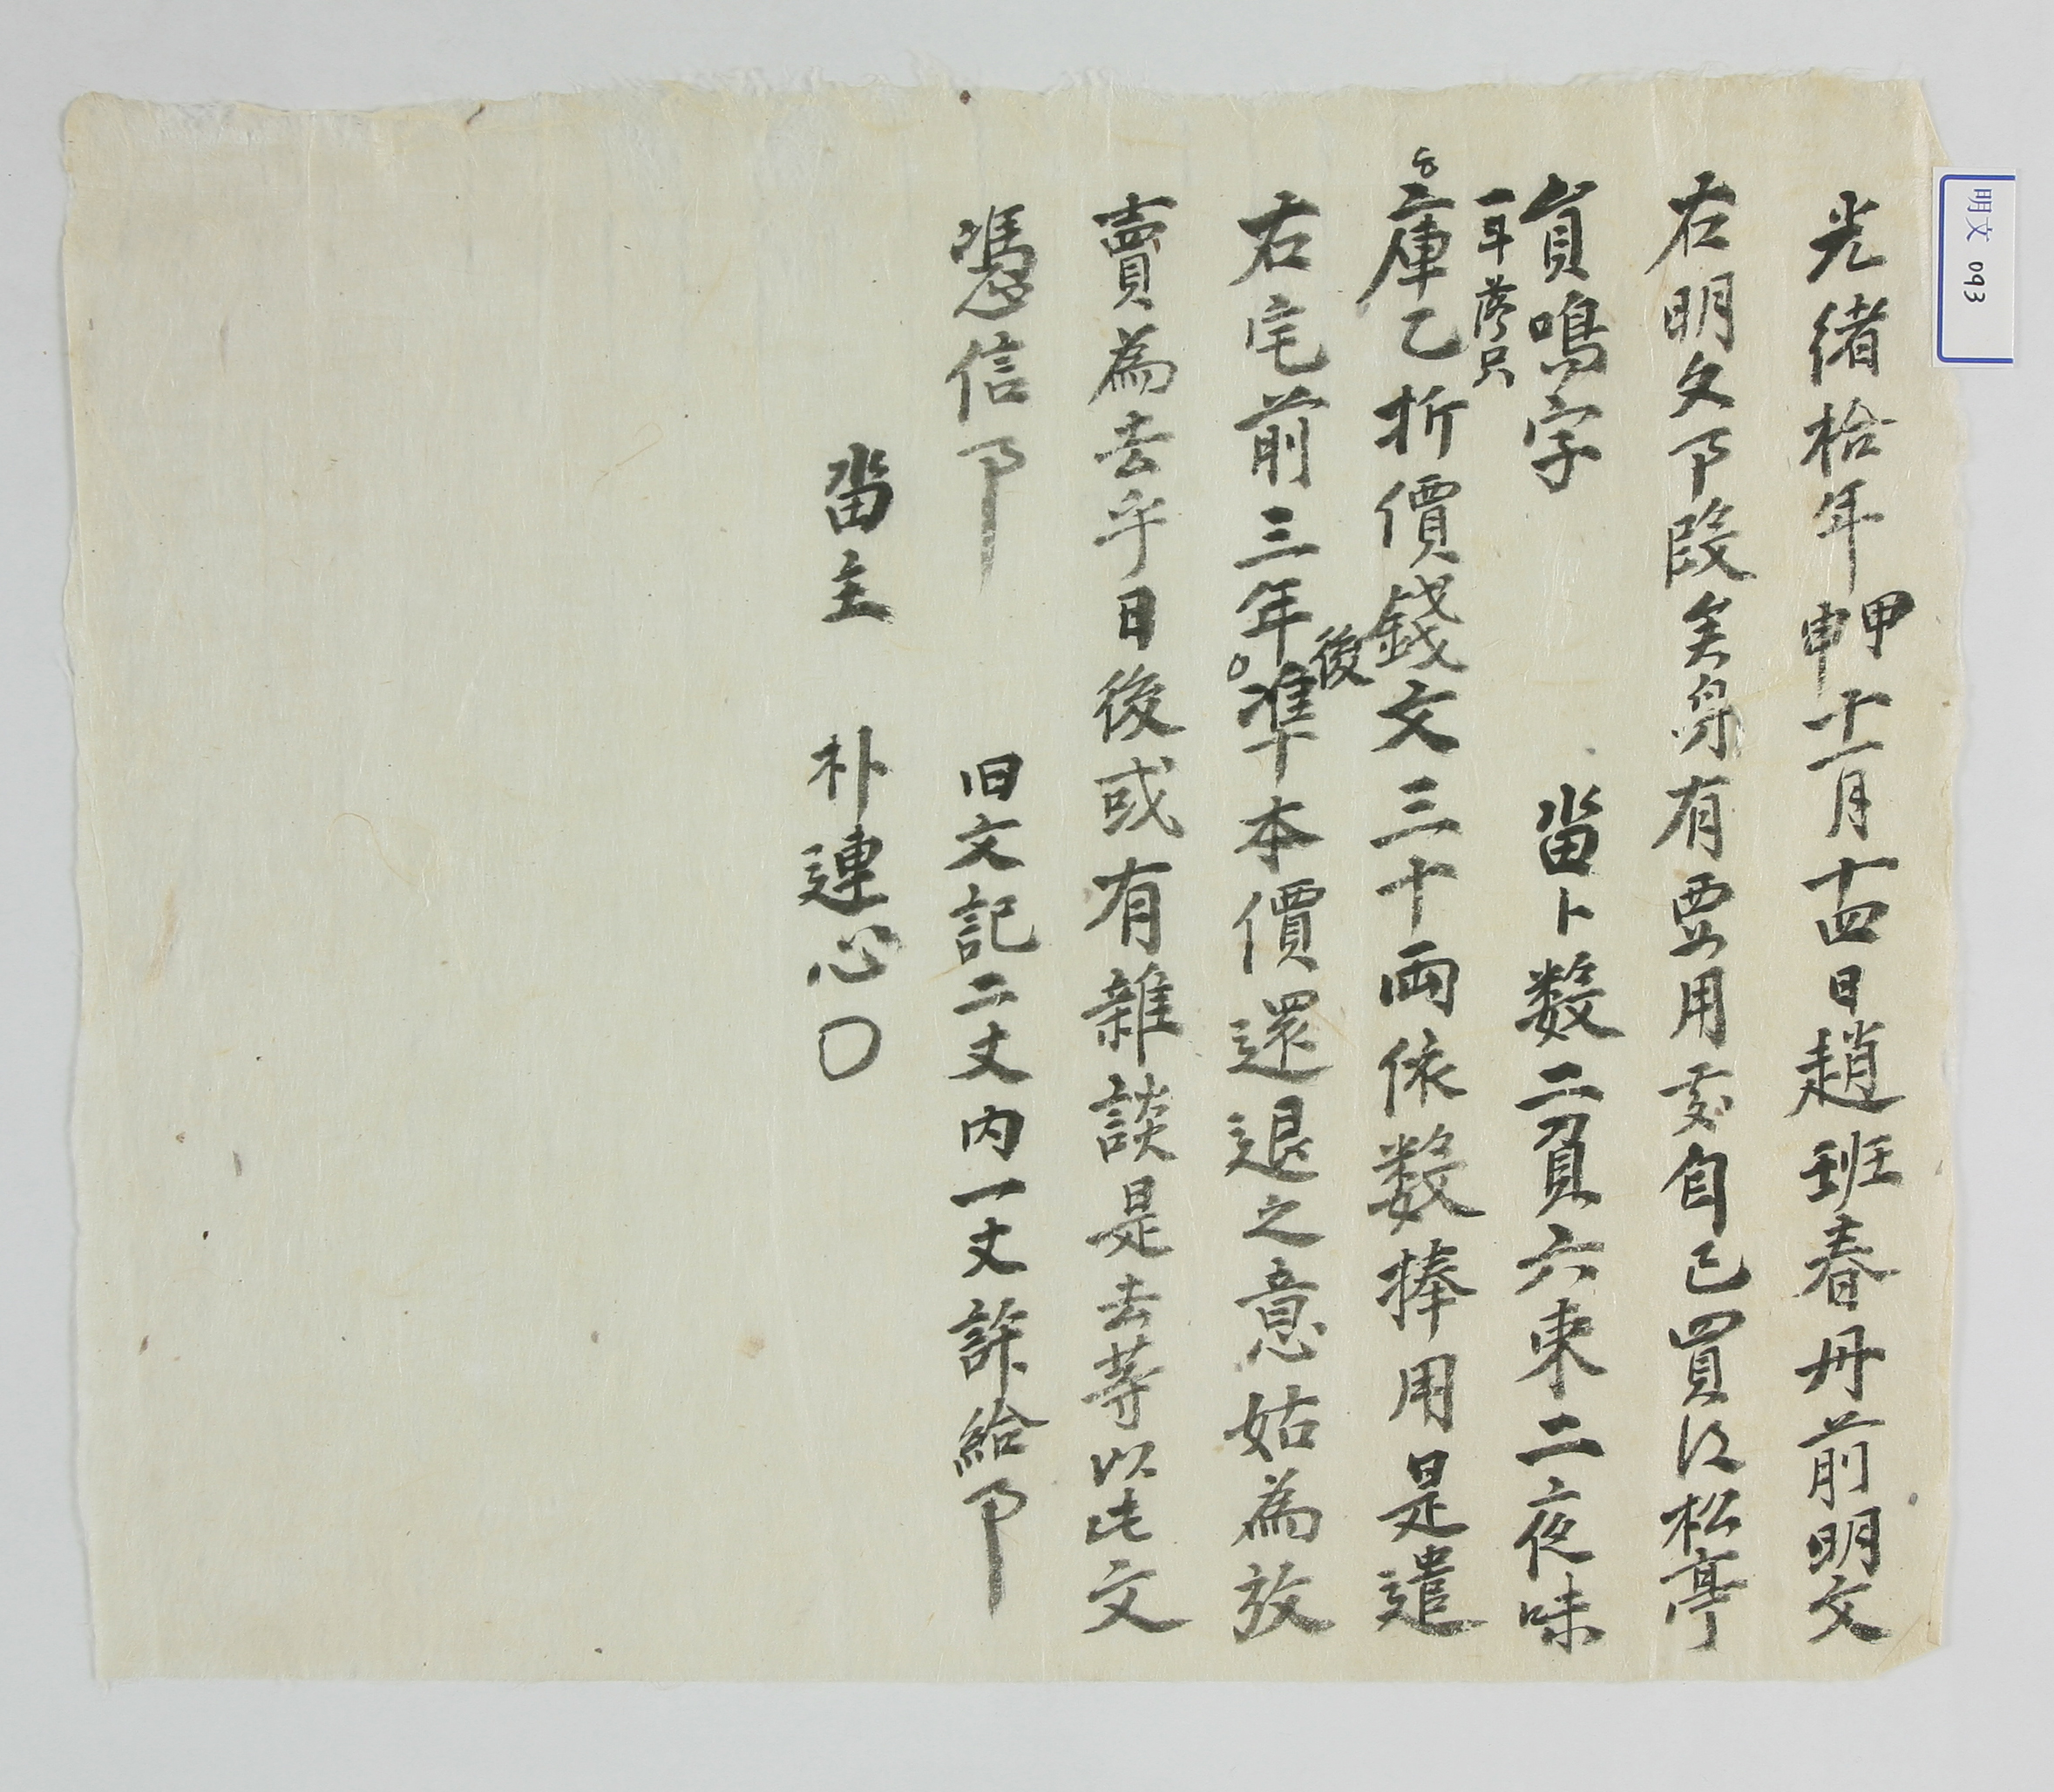 光緖拾年甲申十一月十四日趙班春丹前明文
右明文事段矣身有要用處自己買得松亭
員鳴字 畓卜数二負六束二夜味
一斗落只
庫乙折價錢文三十両依数捧用是遣
右宅前三年後準本價還退之意姑為放
賣為去乎日後或有雜談是去等以此文
憑信事 旧文記二丈内一丈許給事
畓主 朴連心
明文 093